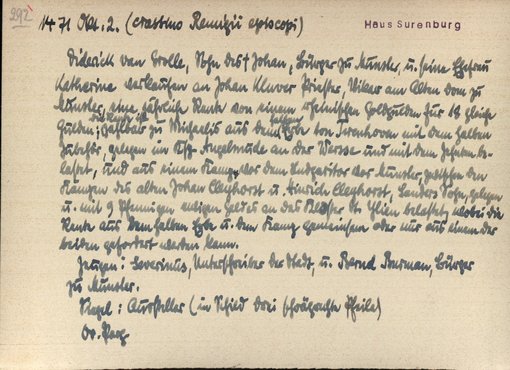 292
Haus Surenburg
1471 Okt. 2. (crastino Remigii episcopi)
Diderick van Grolle, Sohn des † Johan, Bürger zu Münster, u. seine Ehefrau
Katherine verkaufen an Johan Kluver Priester, Vikar am Alten Dom zu
Münster, eine jährliche Rente von einem rheinischen Goldgulden für 18 gleiche
Gulden; die Rente ist zahlbar zu Michaelis aus dem halben Erbe ton Averhoven mit dem halben
Zubehör, gelegen im Ksp. Angelmode an der Werse und mit dem Zehnten be-
lastet, und aus einem Kamp vor dem Ludgeritor vor Münster, zwischen den
Kämpen des alten Johan Cleyhorst u. Hinrich Cleyhorst, Sanders Sohn, gelegen
u. mit 9 Pfennigen ewigen Geldes an das Kloster St. Ilien belastet, wobei die
Rente aus dem halben Erbe u. dem Kamp gemeinsam oder nur aus einem der
beiden gefordert werden kann.
Zeugen: Severinus, Unterschreiber der Stadt, u. Bernd Buerman, Bürger
zu Münster.
Siegel: Aussteller (im Schild drei schrägrechte Pfeile)
Or. Perg.